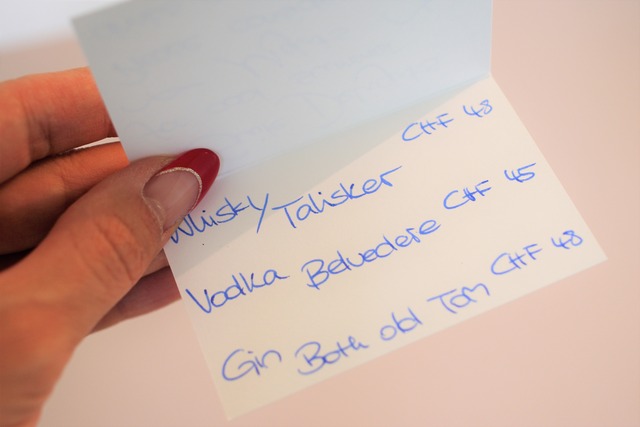 Whisky Talisker CHF 48
Vodka Belvedere CHF 45
Gin Both old Tom CHF 48